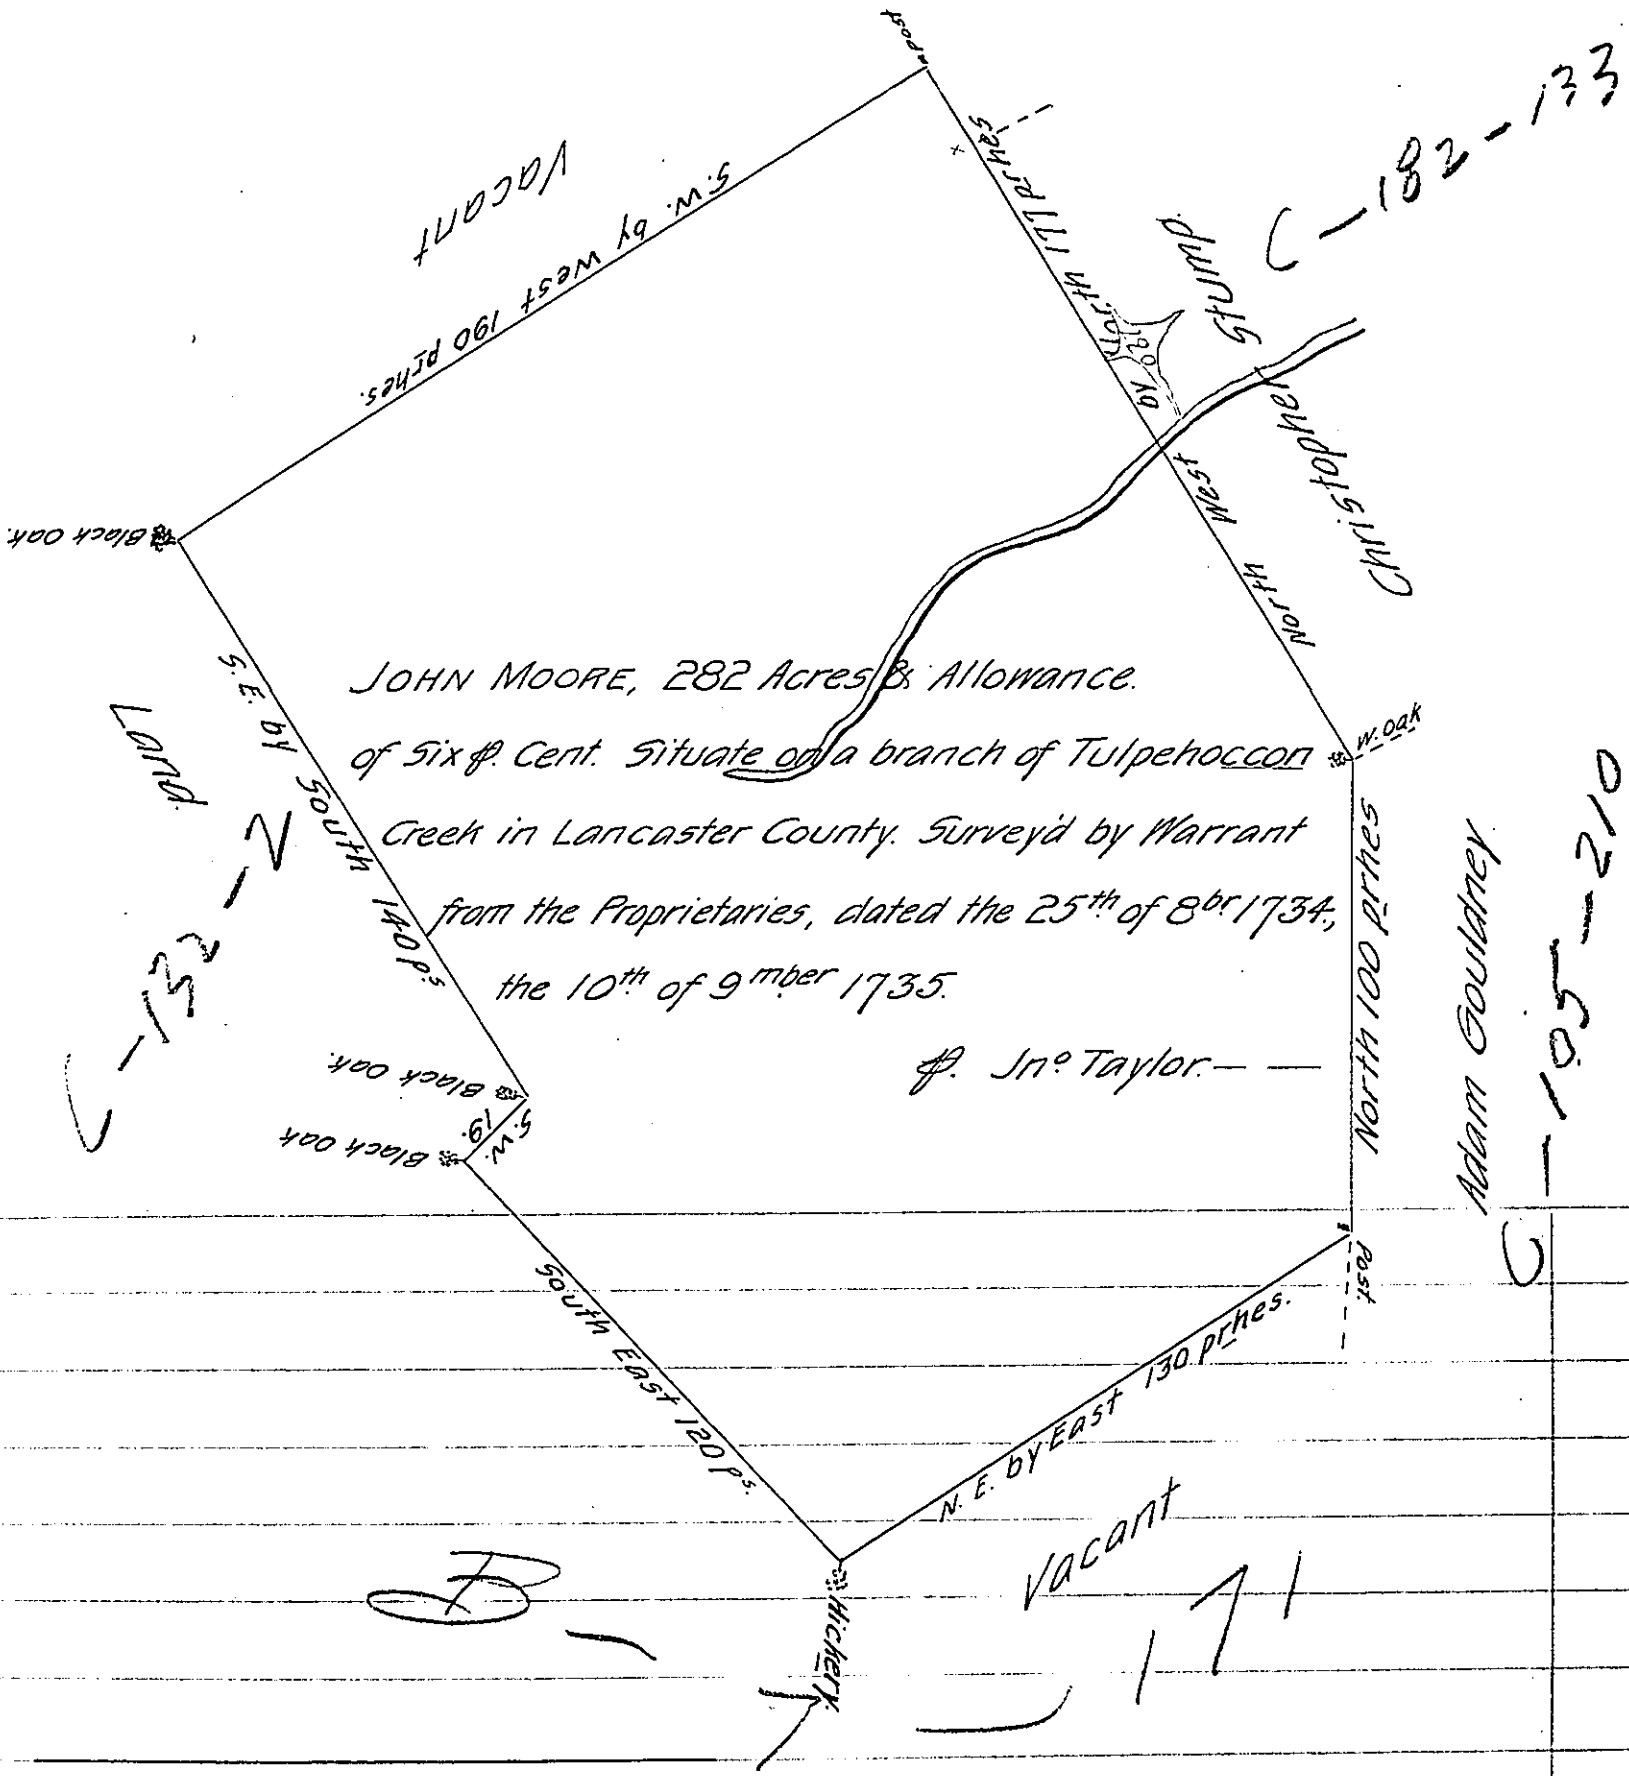 Post
C-182-133
Vacant
S.W. by West 190 prhes.
North West by North 177 prhes
Christopher Stump
Black Oak.
JOHN MOORE, 282 Acres & Allowance.
of Six ⅌. Cent. Situate on a branch of Tulpehoccon
Creek in Lancaster County. Survey'd by Warrant
from the Proprietaries, dated the 25th of 8br. 1734,
the 10th of 9mber 1735.
⅌. Jno Taylor.
W. Oak
S.E. by South 140 ps.
Land
C-132-2
North 100 prhes
Adam Gouldney
C-105-210
Black Oak.
S.W. 19.
Black Oak
Post
South East 120 ps.
N. E. by East 130 prhes.
Vacant
Hickery.
171